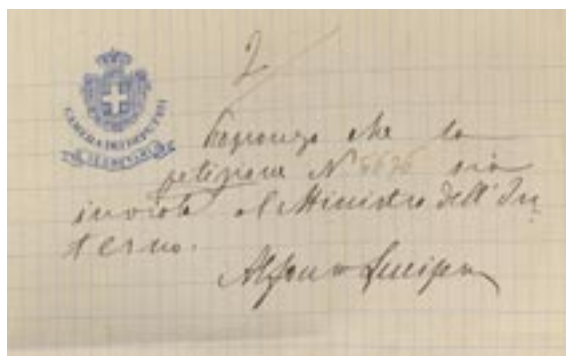 2
CAMERA DEI DEPUTATI
Propongo che la
petizione N° 5636 sia
inviata al Ministro dell'In:
terno.
Alfonso